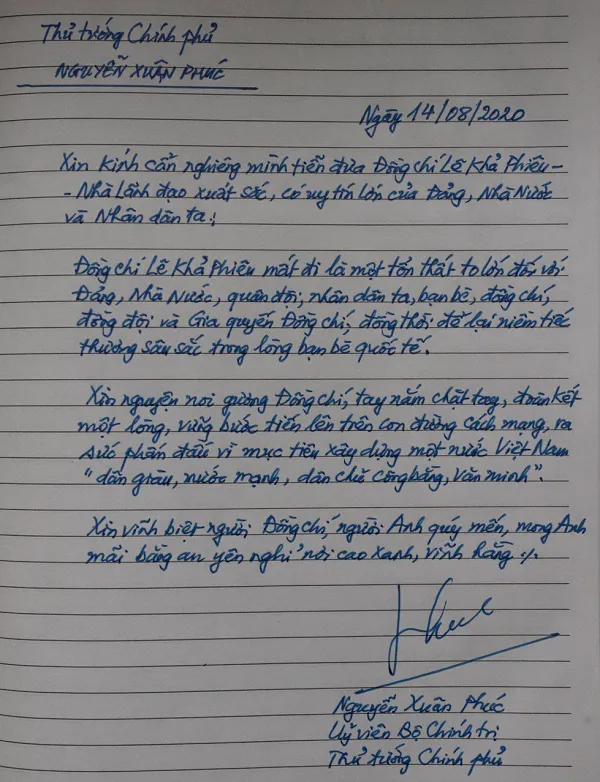 Thủ tướng Chính phủ
NGUYỄN XUÂN PHÚC
Ngày 14/08/2020
Xin Kính cẩn nghiêng mình tiễn đưa Đồng chí Lê Khả Phiêu-
- Nhà Lãnh đạo xuất sắc, có uy tín lớn của Đảng, Nhà Nước
và Nhân dân ta;
Đồng chí Lê Khả Phiêu mất đi là một tổn thất to lớn đối với
Đảng, Nhà Nước, quân đội, nhân dân ta, bạn bè, đồng chí,
đồng đội và Gia quyến Đồng chí, đồng thời để lại niềm tiếc
thương sâu sắc trong lòng bạn bè quốc tế.
Xin nguyện noi gương Đồng chí, tay nắm chặt tay, đoàn kết
một lòng, vững bước tiến lên trên con đường cách mạng, ra
sức phấn đấu vì mục tiêu xây dựng một nước Việt Nam
"dân giàu, nước mạnh, dân chủ công bằng, văn minh".
Xin vĩnh biệt người Đồng chí, người Anh quý mến, mong Anh
mãi bằng an yên nghỉ nơi cao xanh, vĩnh hằng ./.
Phuc
Nguyễn Xuân Phúc
Uỷ viên Bộ Chính trị
Thủ tướng Chính phủ